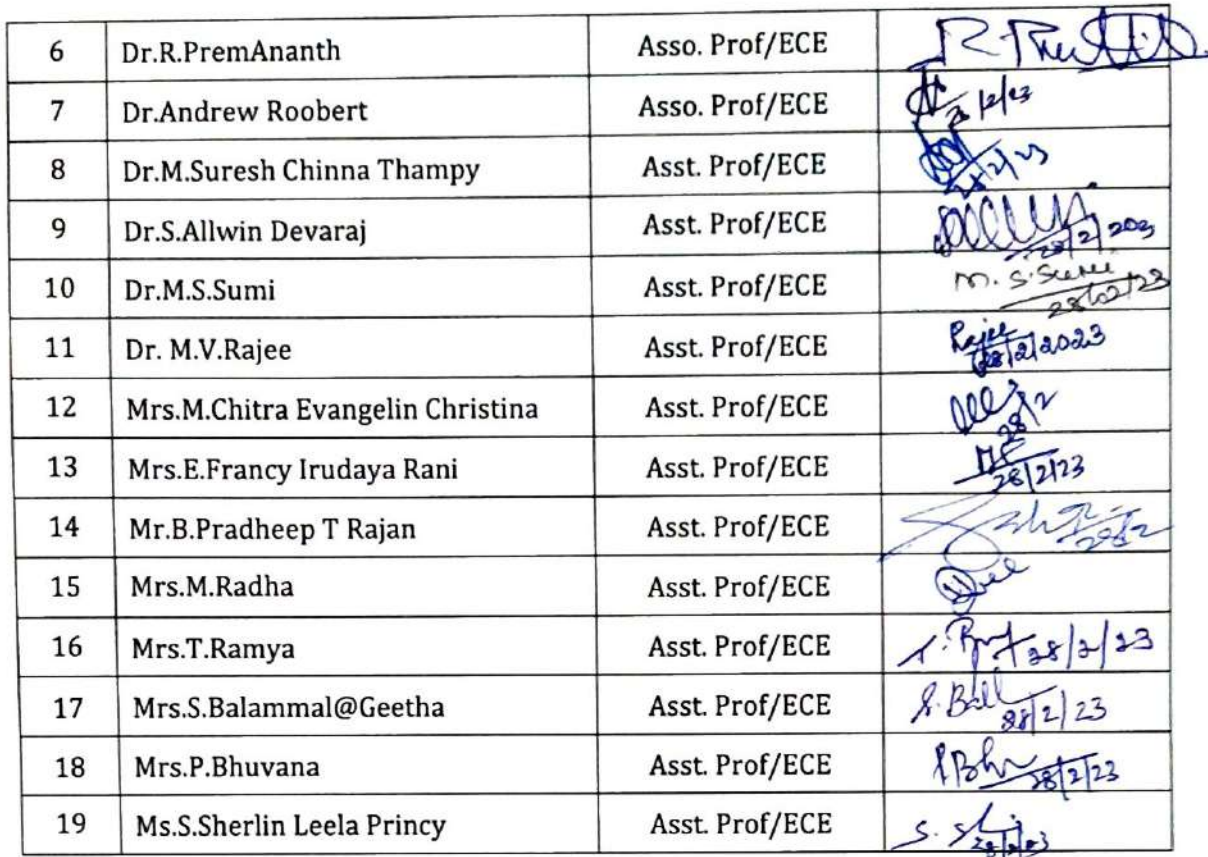 6 Dr.R.PremAnanth Asso. Prof/ECE
7 Dr.Andrew Roobert Asso. Prof/ECE 28/2/23
8 Dr.M.Suresh Chinna Thampy Asst. Prof/ECE 28/2/23
9 Dr.S.Allwin Devaraj Asst. Prof/ECE 28/2/2023
10 Dr.M.S.Sumi Asst. Prof/ECE M.S.Sumi 28/02/23
11 Dr. M.V.Rajee Asst. Prof/ECE Rajee 28/2/2023
12 Mrs.M.Chitra Evangelin Christina Asst. Prof/ECE 28/2
13 Mrs.E.Francy Irudaya Rani Asst. Prof/ECE 28/2/23
14 Mr.B.Pradheep T Rajan Asst. Prof/ECE 28/2
15 Mrs.M.Radha Asst. Prof/ECE
16 Mrs.T.Ramya Asst. Prof/ECE 28/2/23
17 Mrs.S.Balammal@Geetha Asst. Prof/ECE S.Ball 28/2/23
18 Mrs.P.Bhuvana Asst. Prof/ECE 28/2/23
19 Ms.S.Sherlin Leela Princy Asst. Prof/ECE 28/2/23